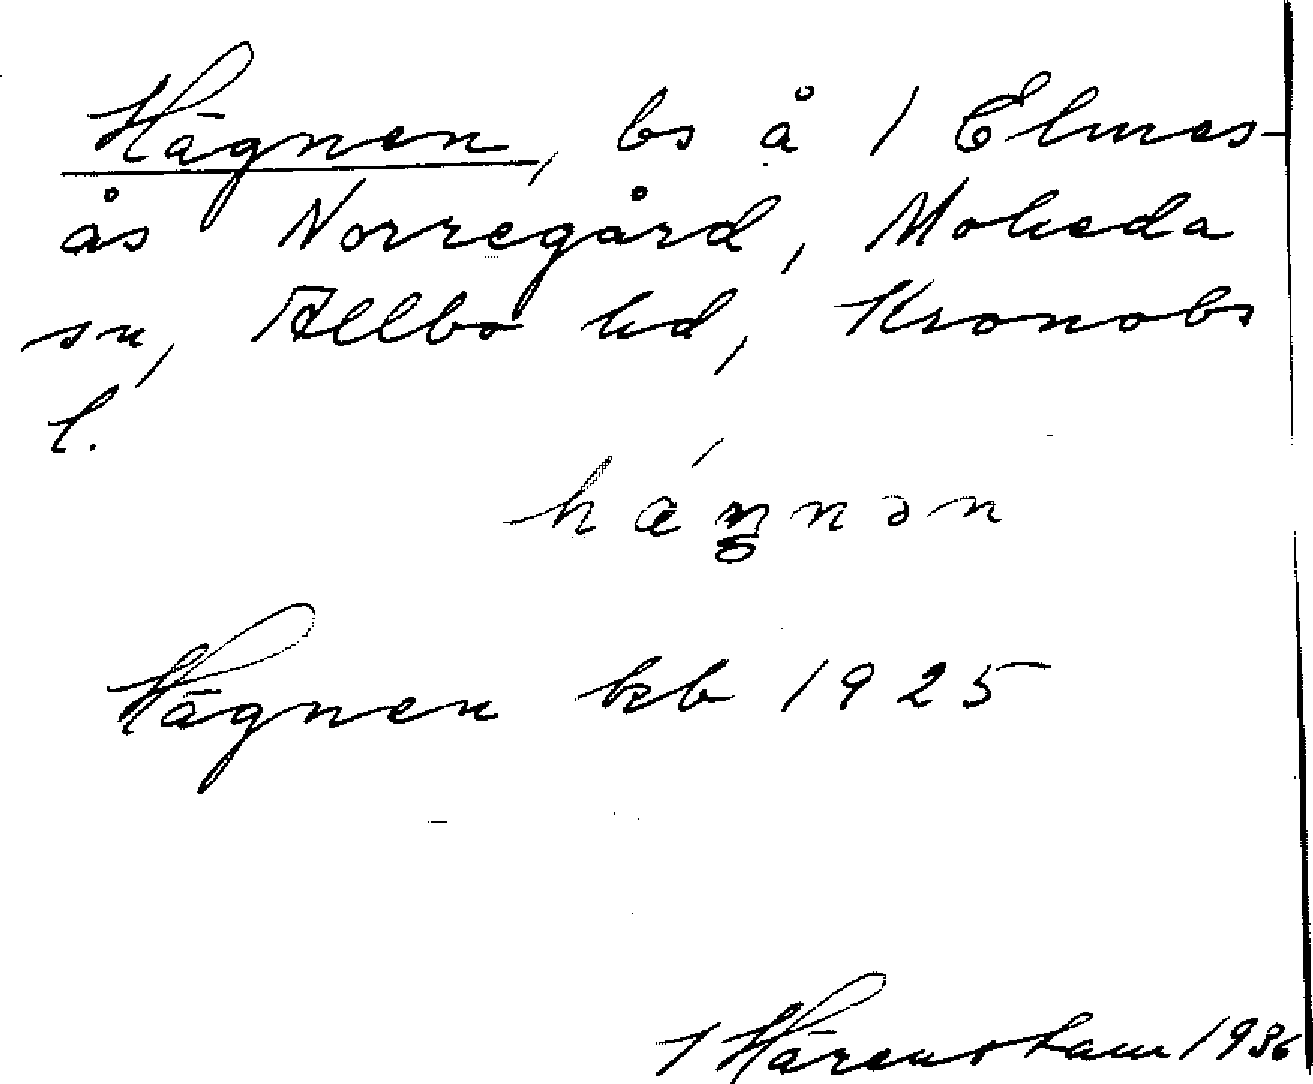 Hägnen, bs å 1 Elmes-
ås Norregård, Moheda
sn, Allbo hd, Kronobs
l.
hæ´ŋnən
Hägnen kb 1925
1936